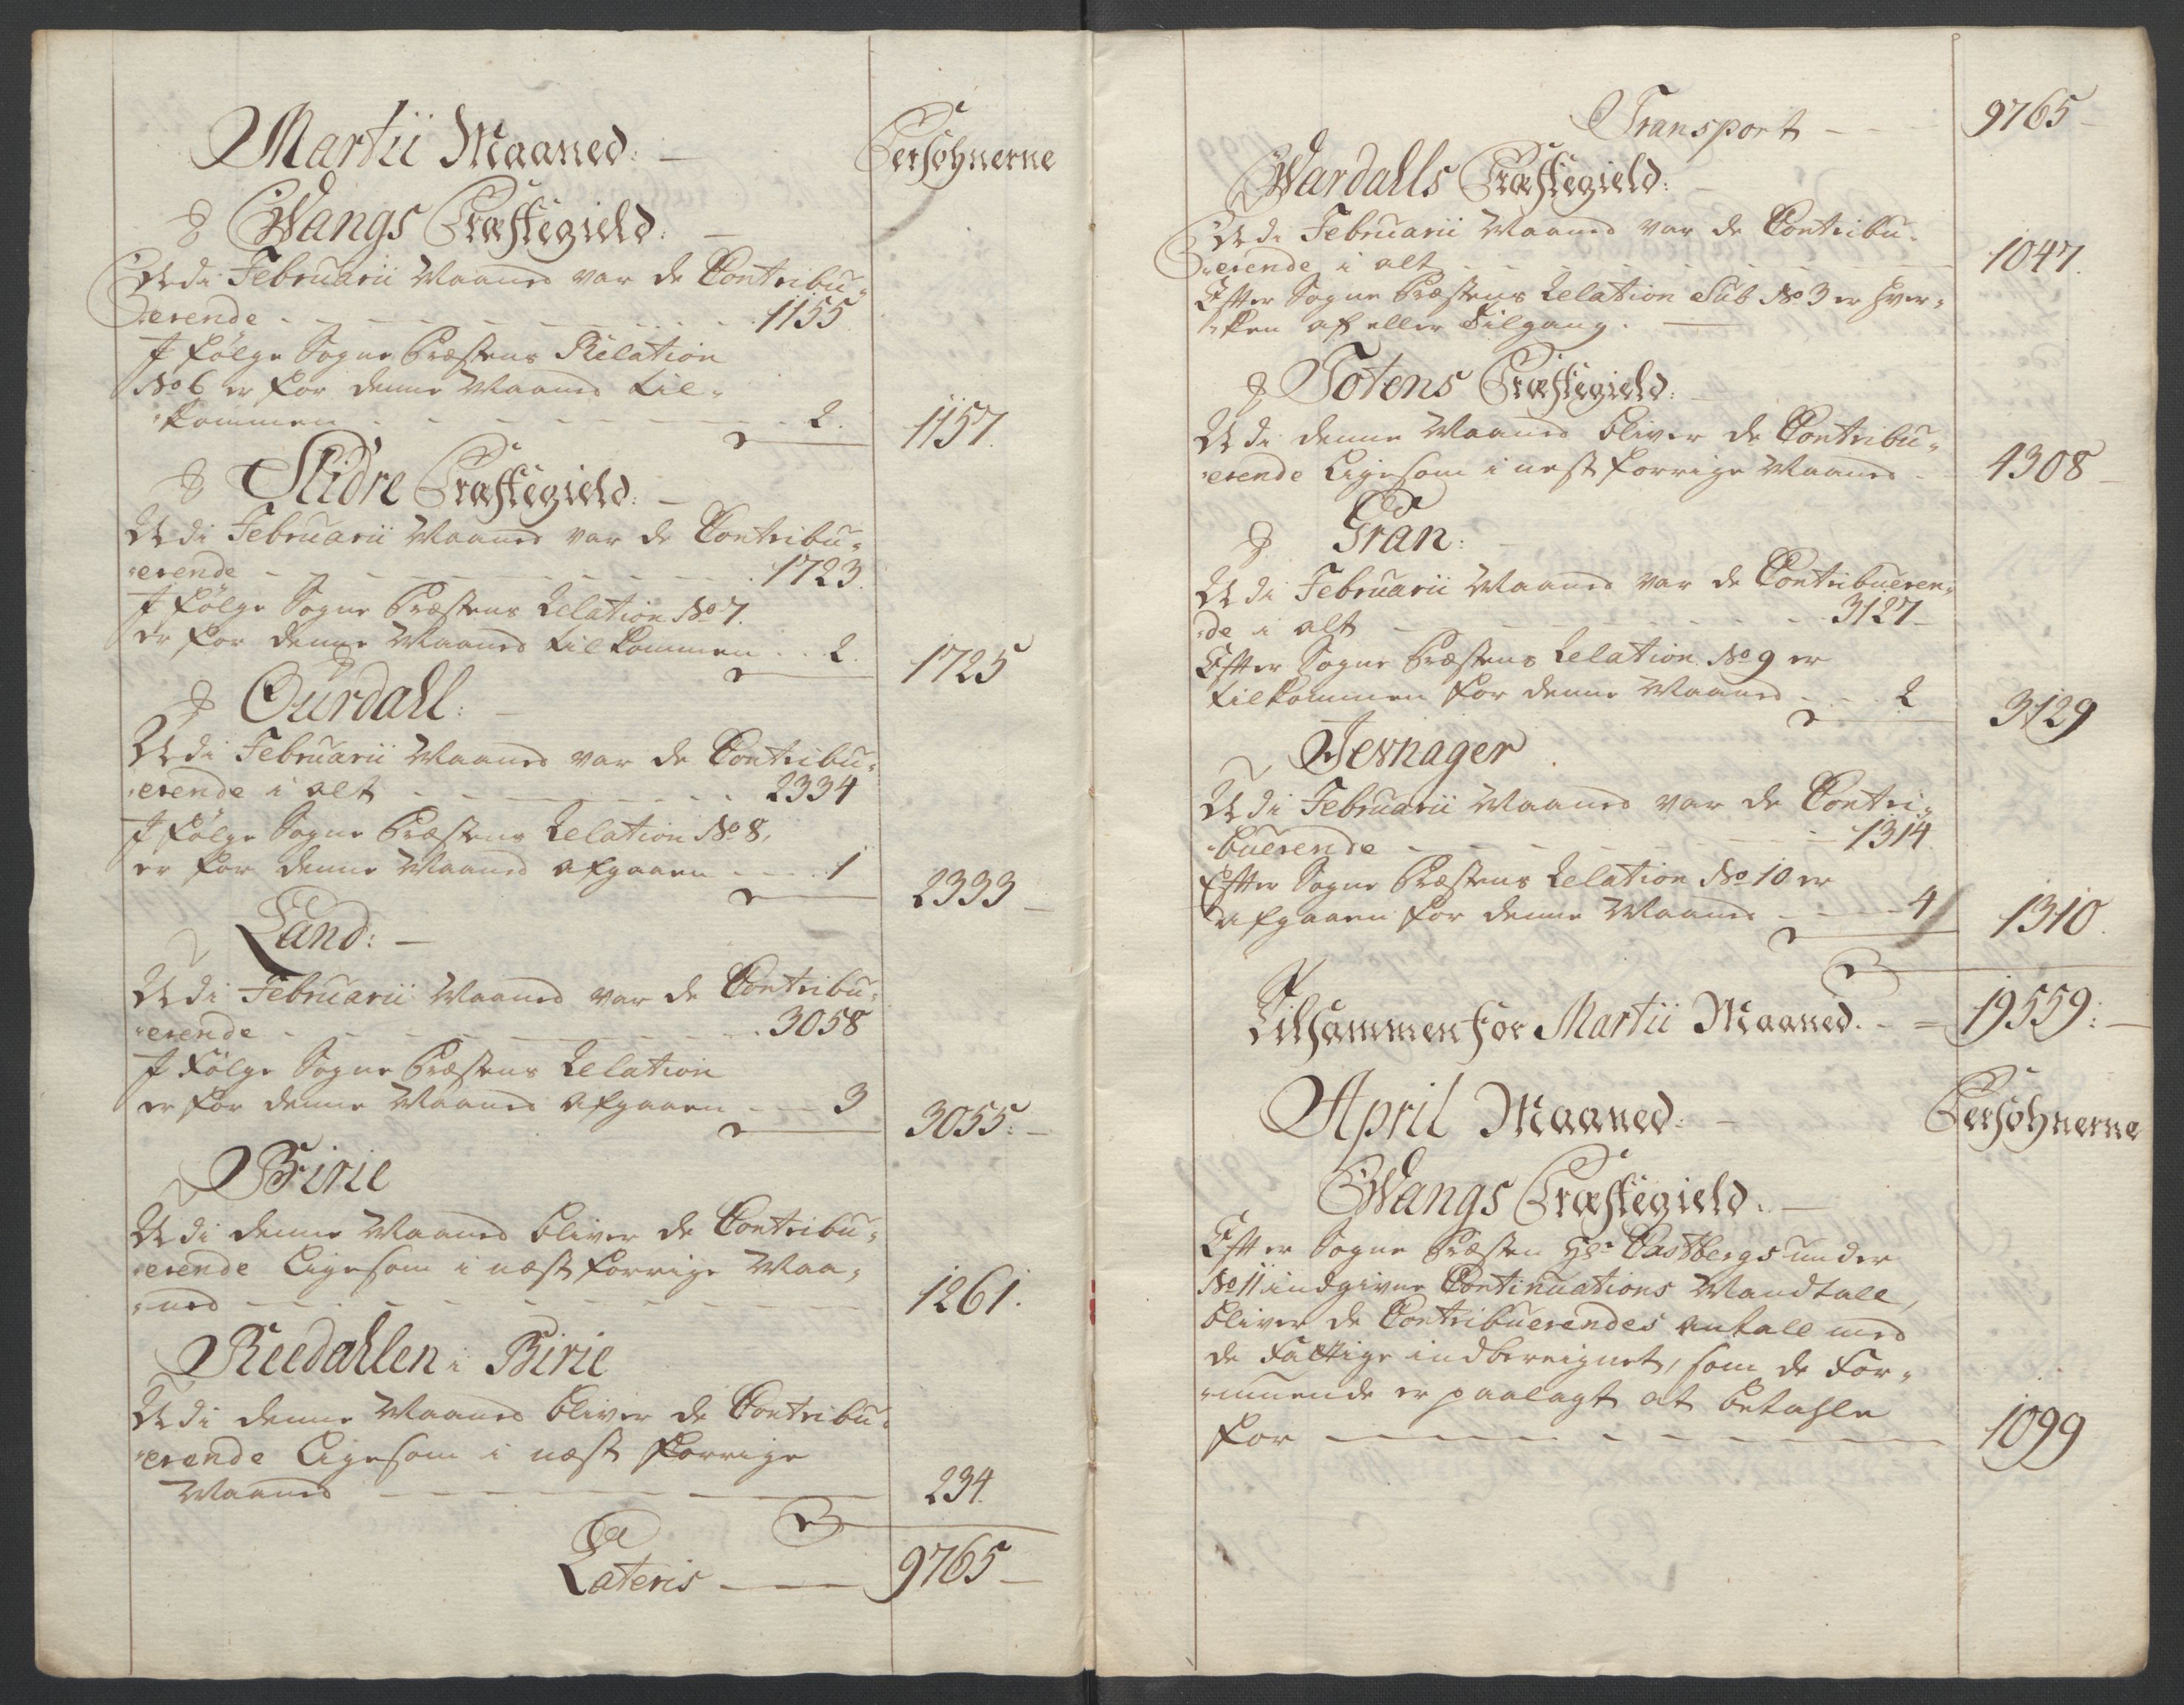 Martii Maaned: —
Persohnerne
Wangs Præstegield: —
Udi Februarii Maaned var de Contribu-
erende - - - 1155
I følge Sogne Præstens Relation
No 6 er for denne Maaned til-
kommen - - - 2.
1157.
Slidre Præstegield: —
Udi Februarii Maaned var de Contribu-
erende - - - 1723.
I følge Sogne Præstens Relation No 7.
er for denne Maaned tilkommen - - 2.
1725
Ourdall: —
Udi Februarii Maaned var de Contribu-
erende i alt - - - 2334
I følge Sogne Præstens Relation No 8,
er for denne Maaned afgaaen - - - 1
2333 —
Land: —
Udi Februarii Maaned var de Contribu-
erende - - - 3058
I Følge Sogne Præstens Relation
er for denne Maaned afgaaen - - - 3
3055: —
Birie
Udi denne Maaned bliver de Contribu-
erende Ligesom i næst forrige Maa-
ned - - -
1261.
Reedahlen i Birie
Udi denne Maaned bliver de Contribu-
erende Ligesom i næst forrige
Maaned - - -
234.
Lateris — —
9765 —
Transport - - -
9765 —
Wardalls Præstegield:
Udi Februarii Maaned var de Contribu-
erende i alt - - -
1047.
Efter Sogne Præstens Relation Sub No 3 er hver-
ken af eller Tilgang. —
Totens Præstegield: —
Udi denne Maaned bliver de Contribu-
erende Ligesom i nest forrige Maaned -
4308 —
Gran: —
Udi Februarii Maaned var de Contribueren-
de i alt - - - 3127 —
Efter Sogne Præstens Relation No 9 er
tilkommen for denne Maaned - - - 2
3129
Jevnager
Udi Februarii Maaned var de Contri-
buerende - - - 1314
Efter Sogne Præstens Relation No 10 er
afgaaen for denne Maaned - - - 4
1310.
Tilsammen for Martii Maaned. - =
19559: —
April Maaned: —
Persohnerne
Wangs Præstegield: —
Efter Sogne Præsten Hr Castbergs under
No 11 indgivne Continuations Mandtall,
bliver de Contribuerendes antall med
de Fattige indbereignet, som de For-
muende er paalagt at betahle
for - - -
1099